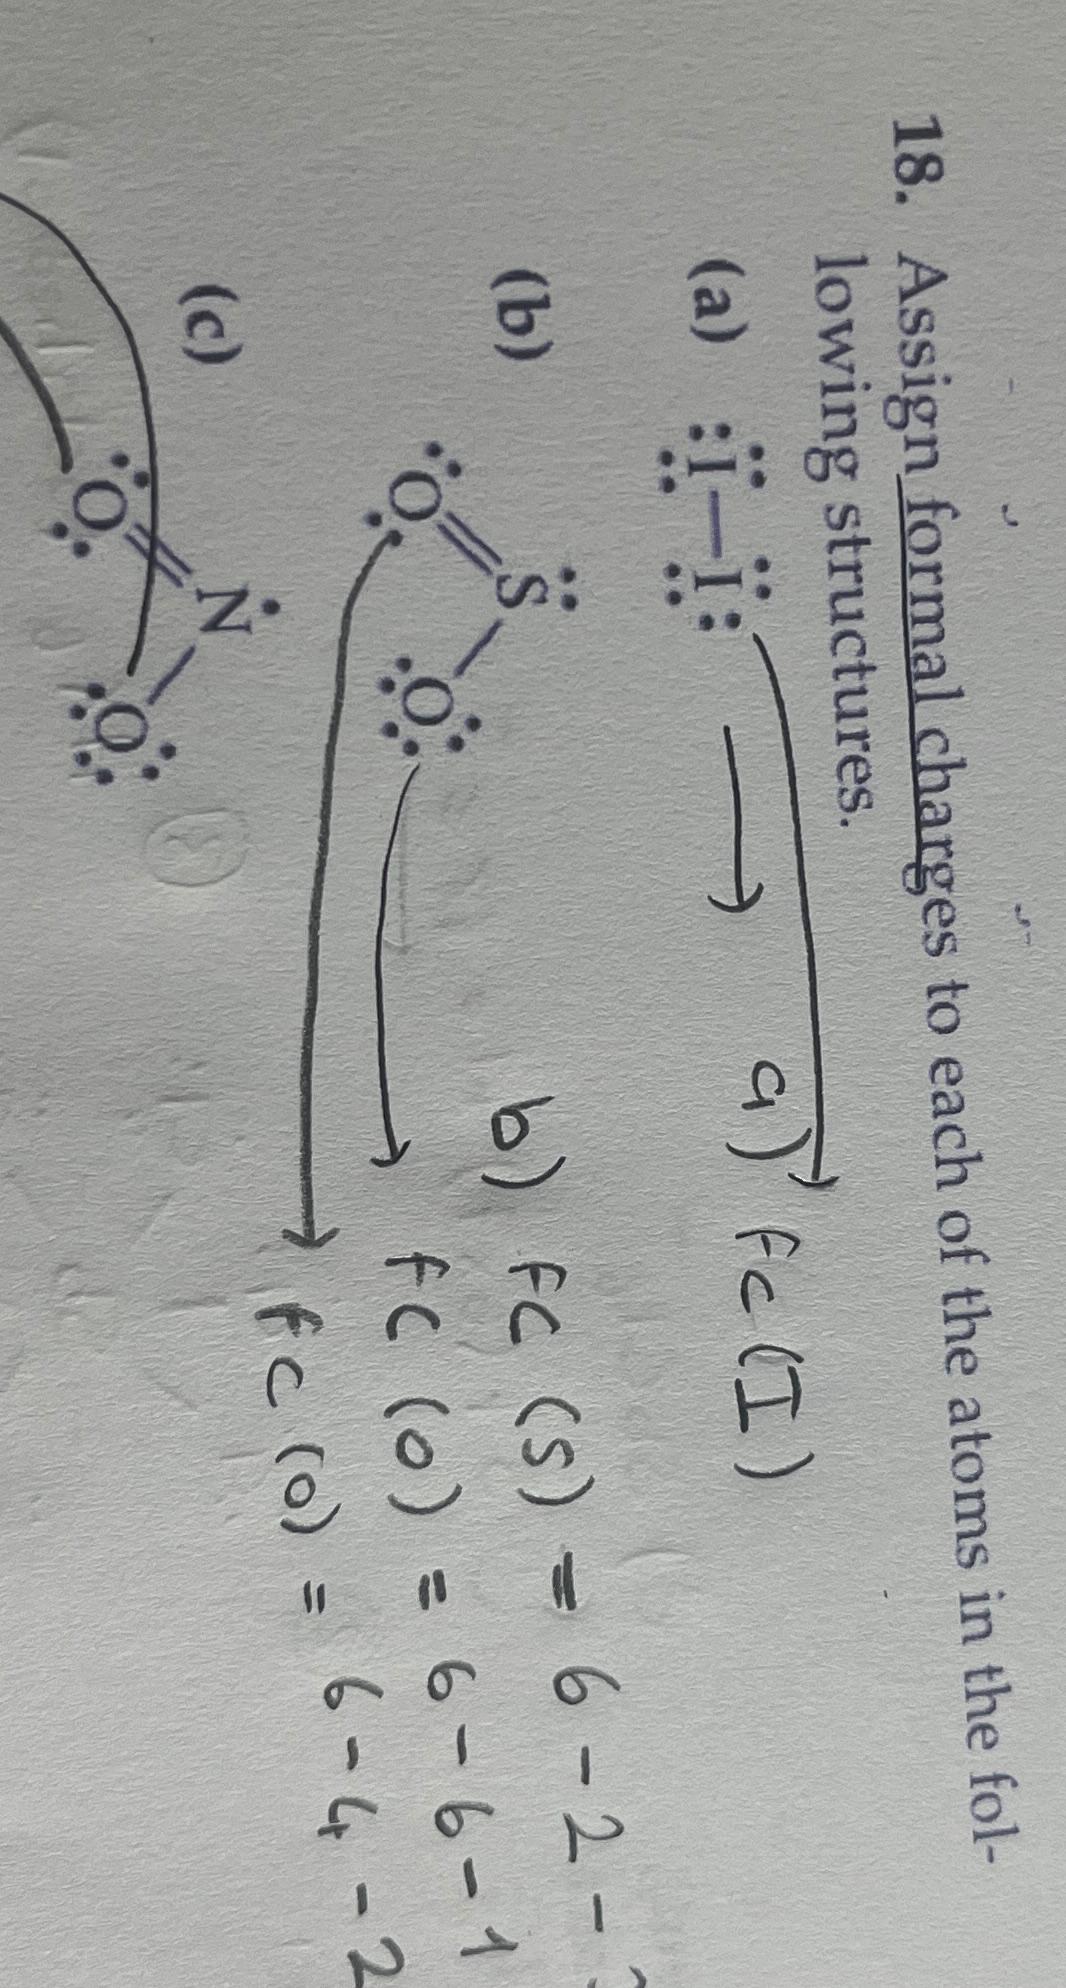 18. Assign formal charges to each of the atoms in the fol-
lowing structures.
(a) I—I a) FC (I)
(b) S b) FC (S) = 6 - 2 -
O O FC (O) = 6 - 6 - 1
FC (O) = 6 - 4 - 2
(c) N
O O